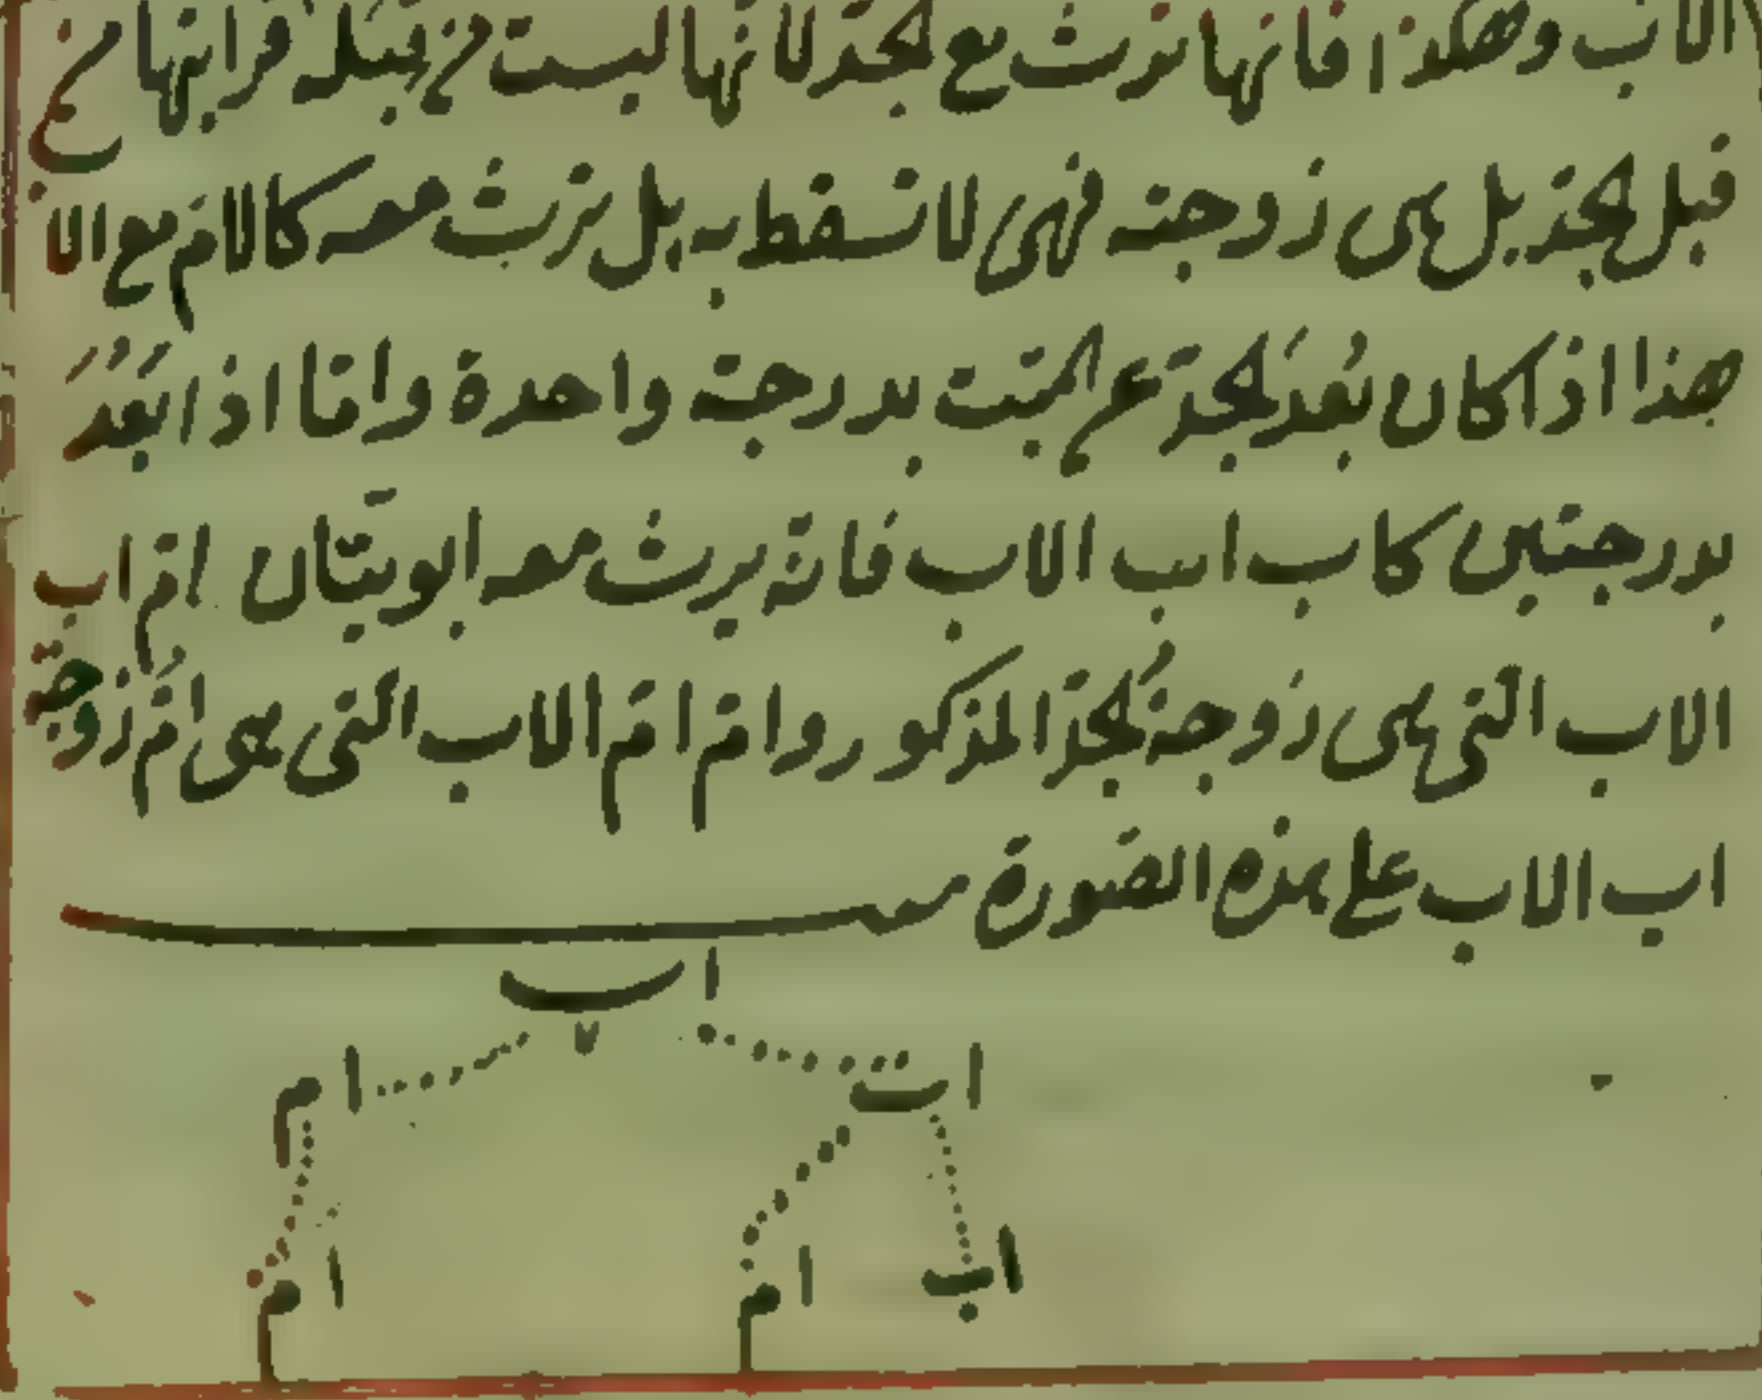 الاب وهكذا فانها ترث مع الجد لانها ليست من قبله قرابتها من
قبل الجد بل هى زوجته فهى لا تسقط به بل ترث معه كالام مع الاب
هذا اذا كان بُعدَ الجدّ عن الميّت بدرجة واحدة وامّا اذا بَعُدَ
بدرجتين كاب اب الاب فانّه يرث معه ابويتّان امّ اب
الاب التى هى زوجةُ الجدّ المذكور وامّ امّ الاب التى هى امُّ زوجة
اب الاب على هذه الصّورة
اب
ام اب
اب ام ام